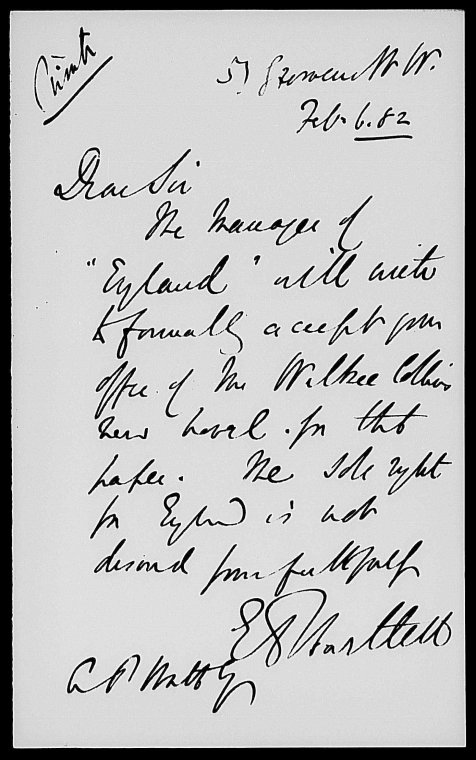 Private
Grosvenor St W.
Feb. 6. 82
Dear Sir
The Manager of
"England" will write
to formally accept your
offer of Mr Wilkie Collins
new novel for that
paper. The sole right
for England is not
desired yours faithfully
E A Bartlett
A P Watt Esq